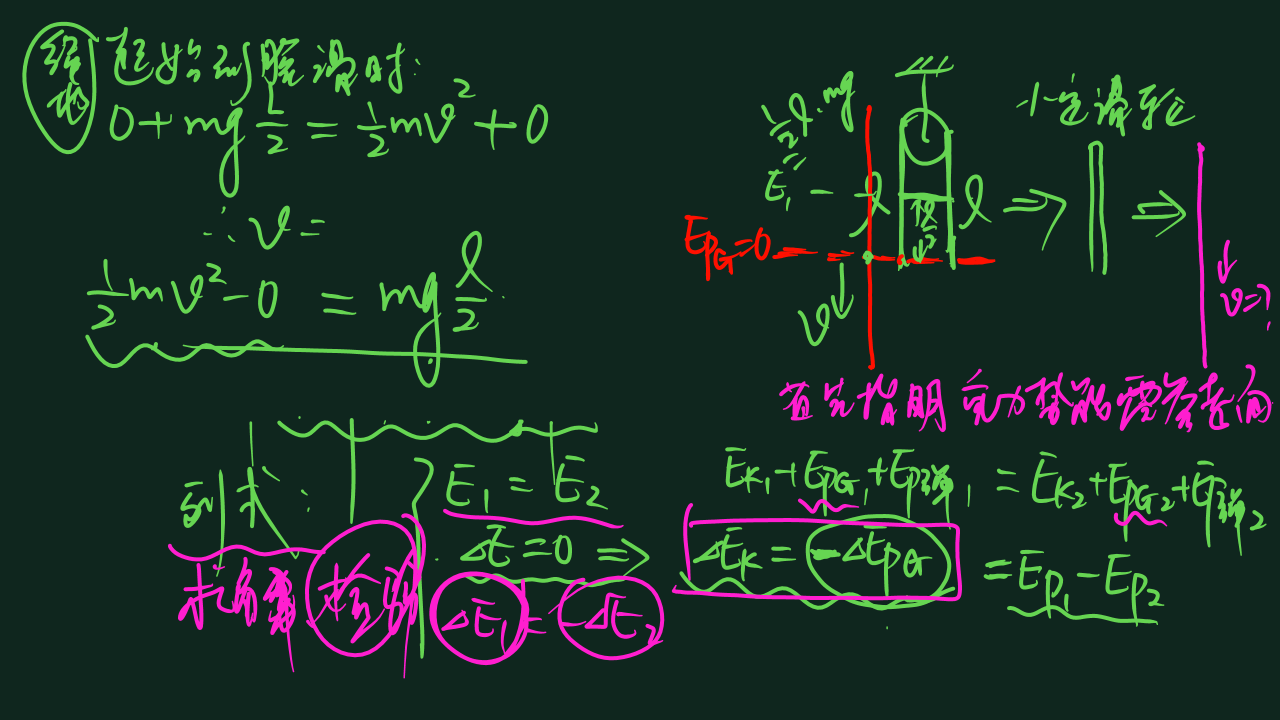 起始到脱滑时:
0+mg l/2 = 1/2 mv² + 0
∴ v =
1/2 mv² - 0 = mg l/2
小定滑轮
1/2 l·mg
E₁
l
l
E_PG=0
v
v=?
首先指明重力势能零参考面
列式:
E₁ = E₂
ΔE = 0 ⇒
ΔE₁ = -ΔE₂
检验
E_K₁+E_PG₁+E_P弹₁ = E_K₂+E_PG₂+E_P弹₂
ΔE_K = -ΔE_PG = E_P₁ - E_P₂